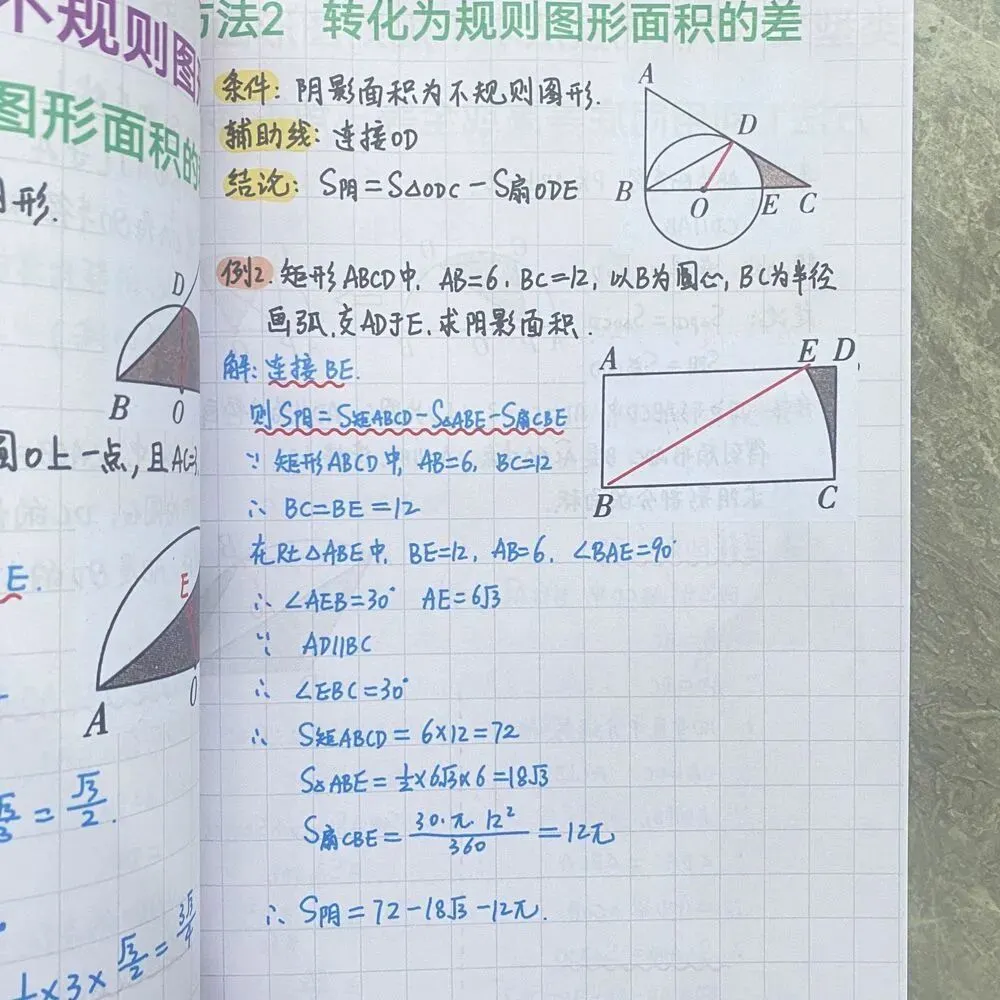 不规则图
图形面积的
图形.
D
B O
圆O上一点,且AC=3,
E.
E
A
= √3/2.
1/2×3×√3/2=3√3/4
方法2 转化为规则图形面积的差
条件: 阴影面积为不规则图形.
辅助线: 连接OD
结论: S阴=S△ODC-S扇ODE
A
D
B O E C
例2. 矩形ABCD中, AB=6, BC=12, 以B为圆心, BC为半径
画弧,交AD于E,求阴影面积.
A E D
B C
解: 连接BE.
则S阴=S矩ABCD-S△ABE-S扇CBE
∵ 矩形ABCD中, AB=6, BC=12
∴ BC=BE=12
在Rt△ABE中, BE=12, AB=6, ∠BAE=90°
∴ ∠AEB=30° AE=6√3
∵ AD//BC
∴ ∠EBC=30°
∴ S矩ABCD=6×12=72
S△ABE=1/2×6√3×6=18√3
S扇CBE=30·π·12²/360=12π
∴ S阴=72-18√3-12π.